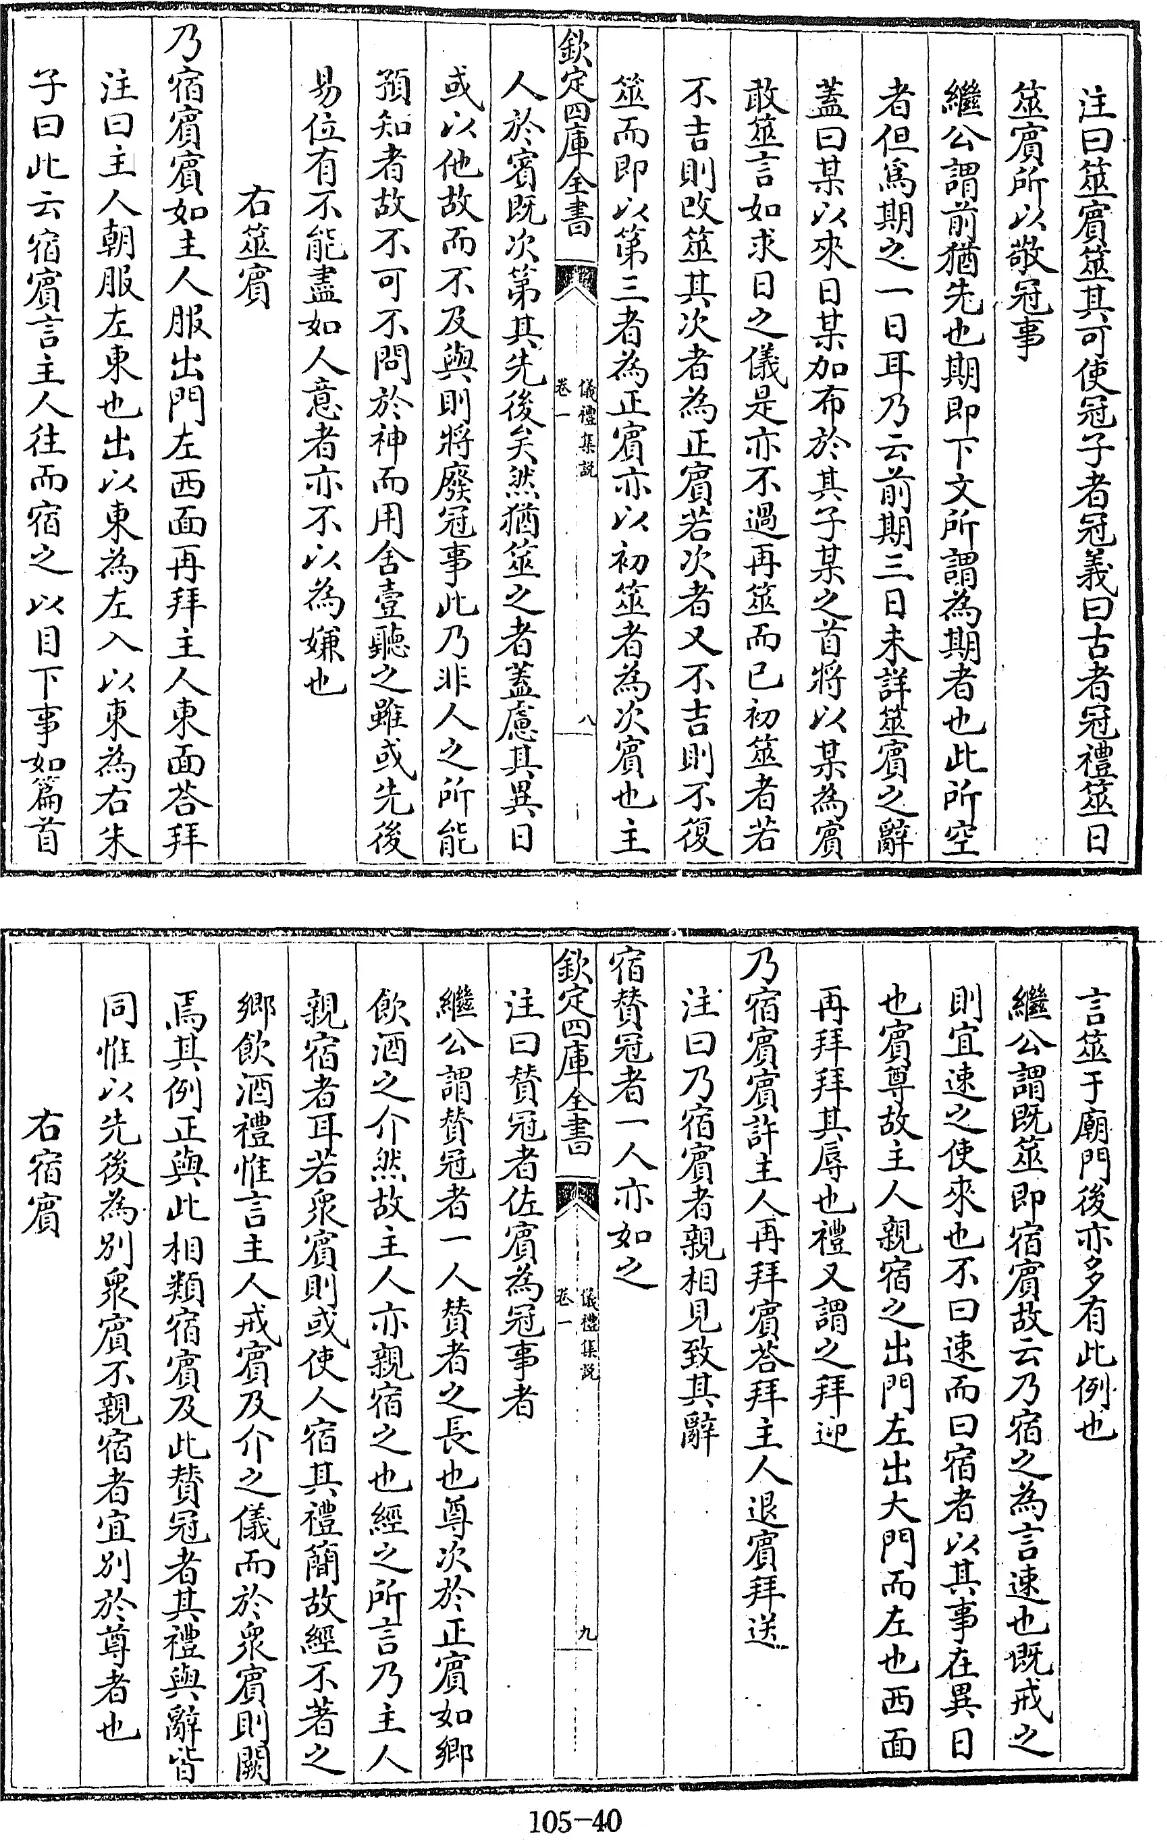 注曰筮賓筮其可使冠子者冠義曰古者冠禮筮日
筮賓所以敬冠事
繼公謂前猶先也期即下文所謂為期者也此所空
者但爲期之一日耳乃云前期三日未詳筮賓之辭
蓋曰某以來日某加布於其子某之首將以某為賓
敢筮言如求日之儀是亦不過再筮而已初筮者若
不吉則改筮其次者為正賓若次者又不吉則不復
筮而即以第三者為正賓亦以初筮者為次賓也主
欽定四庫全書
儀禮集說
卷一
八
人於賓既次第其先後矣然猶筮之者蓋慮其異日
或以他故而不及與則將廢冠事此乃非人之所能
預知者故不可不問於神而用舍壹聽之雖或先後
易位有不能盡如人意者亦不以為嫌也
右筮賓
乃宿賓賓如主人服出門左西面再拜主人東面荅拜
注曰主人朝服左東也出以東為左入以東為右朱
子曰此云宿賓言主人往而宿之以目下事如篇首
言筮于廟門後亦多有此例也
繼公謂既筮即宿賓故云乃宿之為言速也既戒之
則宜速之使來也不曰速而曰宿者以其事在異日
也賓尊故主人親宿之出門左出大門而左也西面
再拜拜其辱也禮又謂之拜迎
乃宿賓賓許主人再拜賓荅拜主人退賓拜送
注曰乃宿賓者親相見致其辭
宿賛冠者一人亦如之
欽定四庫全書
儀禮集說
卷一
九
注曰賛冠者佐賓為冠事者
繼公謂賛冠者一人賛者之長也尊次於正賓如鄉
飲酒之介然故主人亦親宿之也經之所言乃主人
親宿者耳若衆賓則或使人宿其禮簡故經不著之
鄉飲酒禮惟言主人戒賓及介之儀而於衆賓則闕
焉其例正與此相類宿賓及此賛冠者其禮與辭皆
同惟以先後為別衆賓不親宿者宜別於尊者也
右宿賓
105-40